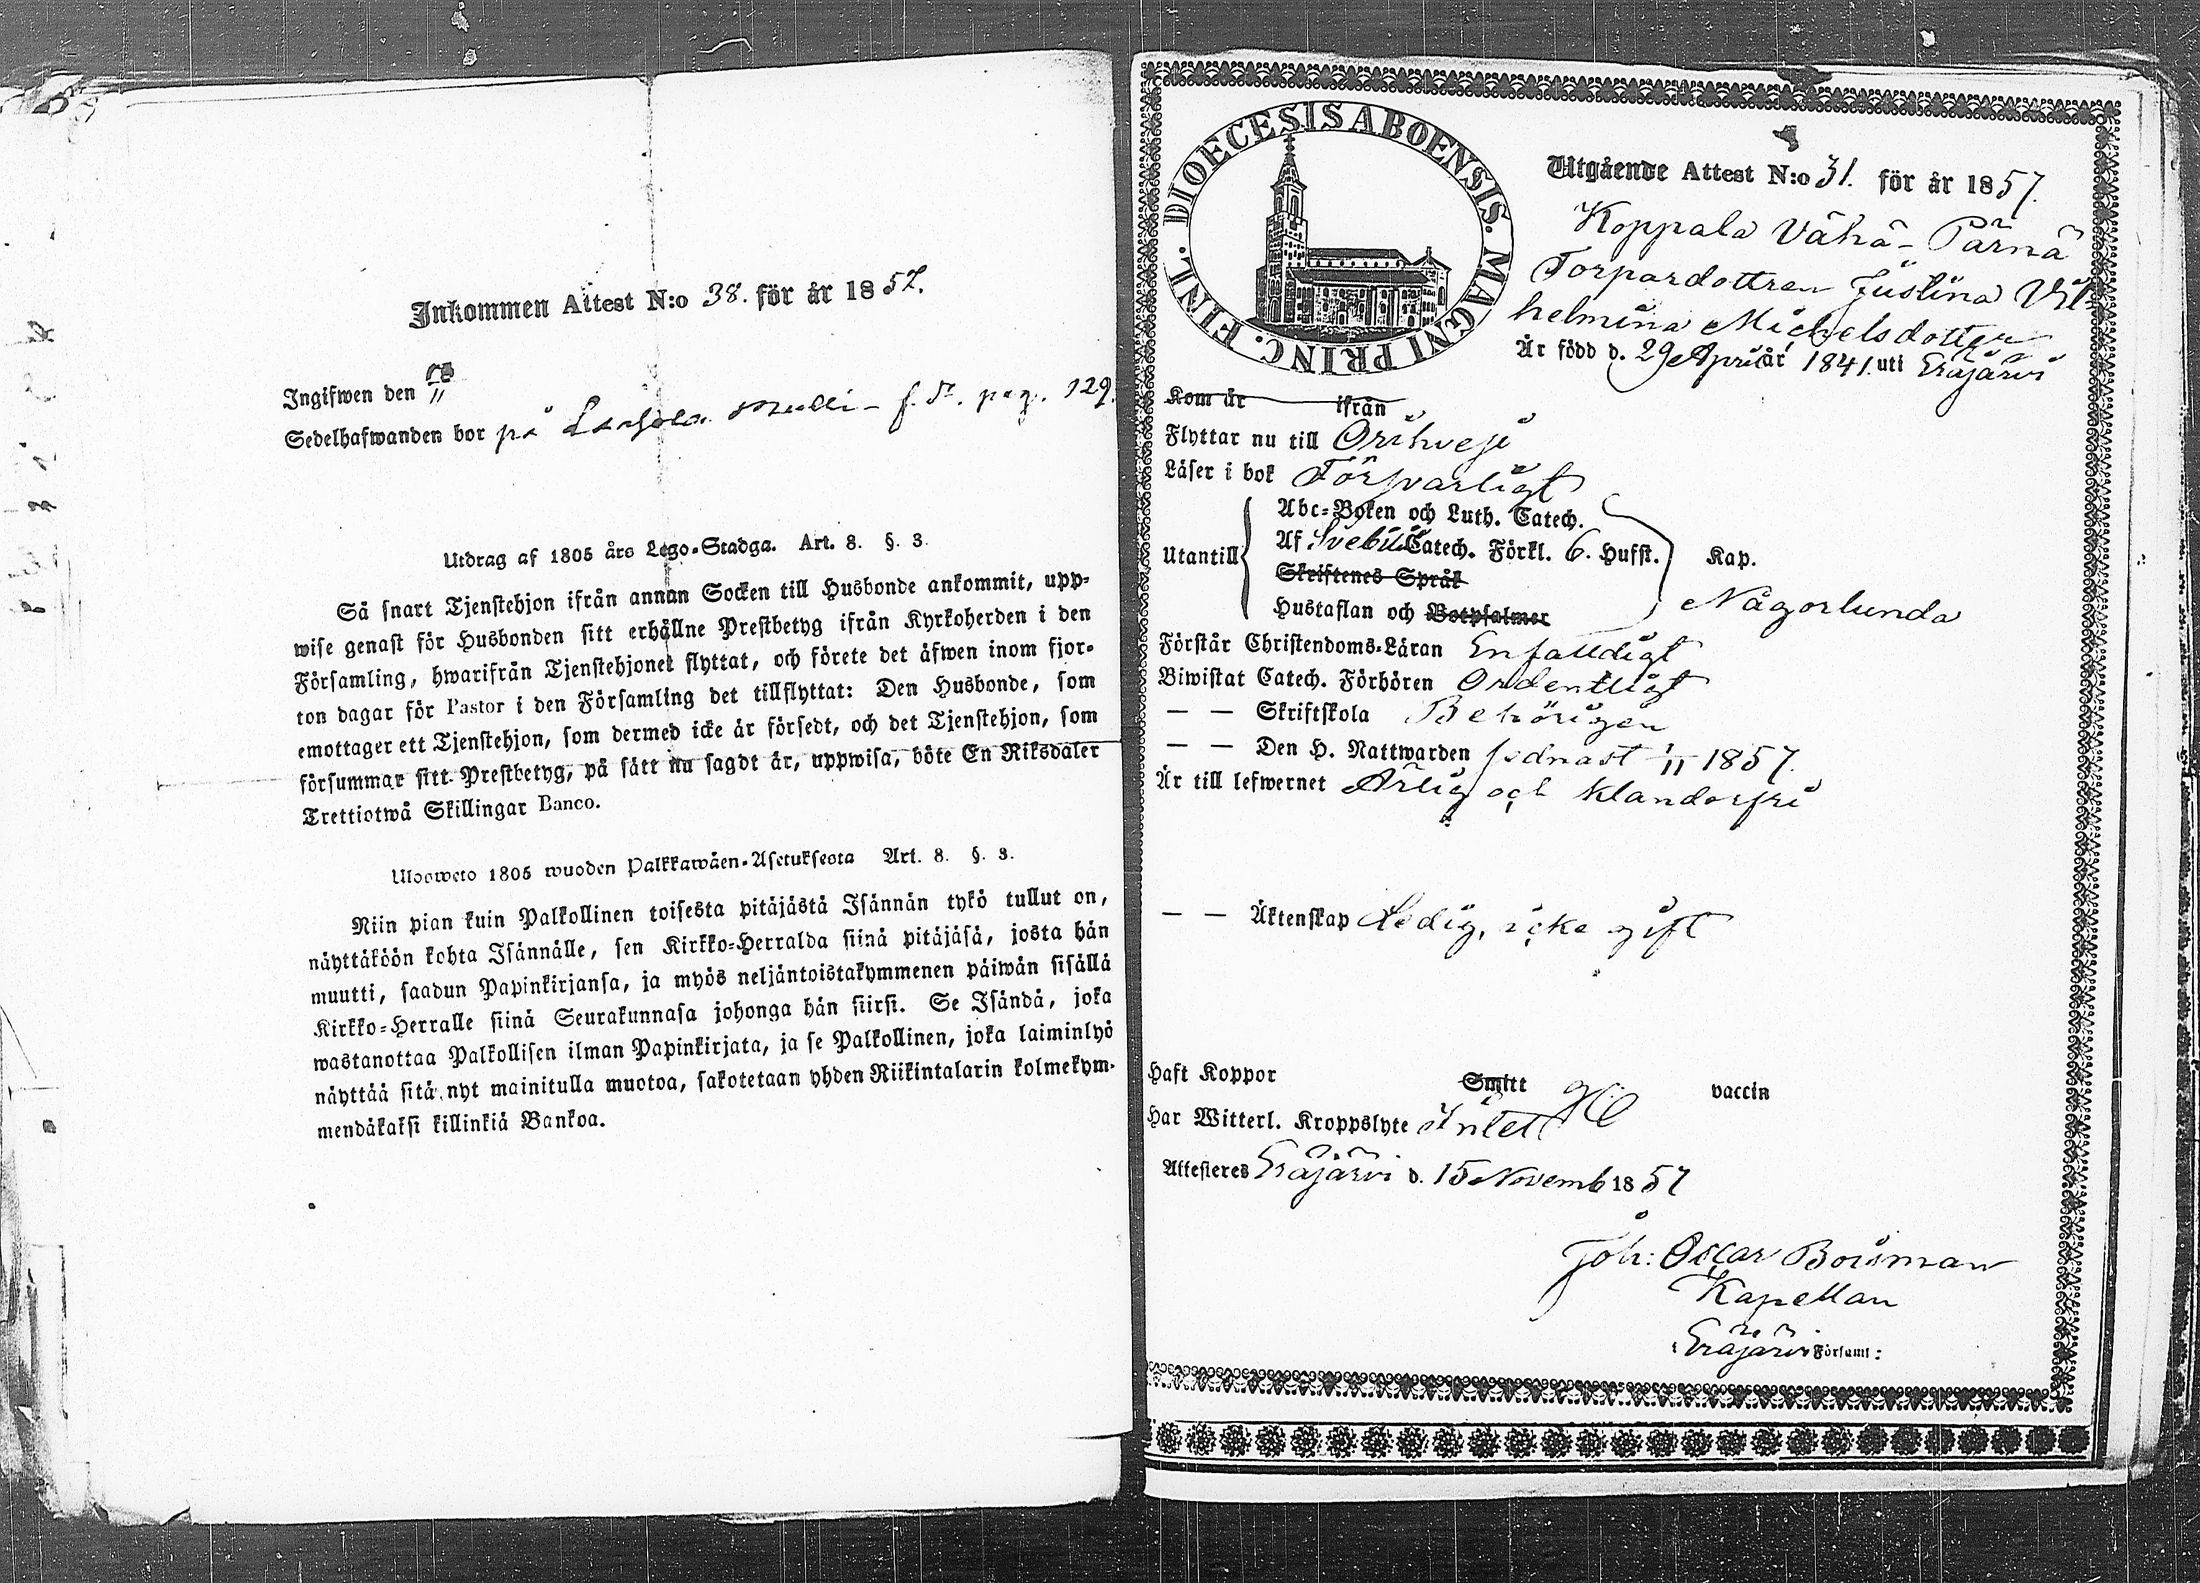 Inkommen Attest N:o 38. för år 1857.
Ingifwen den
Sedelhafwanden bor på f. N. pag. 129.
Utdrag af 1805 års Lego-Stadga. Art. 8. §. 3.
Så snart Tjenstehjon ifrån annan Socken till Husbonde ankommit, upp-
wise genast för Husbonden sitt erhållne Prestbetyg ifrån Kyrkoherden i den
Församling, hwarifrån Tjenstehjonet flyttat, och förete det äfwen inom fjor-
ton dagar för Pastor i den Församling det tillflyttat: Den Husbonde, som
emottager ett Tjenstehjon, som dermed icke är försedt, och det Tjenstehjon, som
försummar sitt Prestbetyg, på sätt nu sagdt är, uppwisa, böte En Riksdaler
Trettiotwå Skillingar Banco.
Ulosweto 1805 wuoden Palkkawäen-Asetuksesta Art. 8. §. 3.
Niin pian kuin Palkollinen toisesta pitäjästä Isännän tykö tullut on,
näyttäköön kohta Isännälle, sen Kirkko-Herralda siinä pitäjäsä, josta hän
muutti, saadun Papinkirjansa, ja myös neljäntoistakymmenen päiwän sisällä
Kirkko-Herralle siinä Seurakunnasa johonga hän siirsi. Se Isändä, joka
wastanottaa Palkollisen ilman Papinkirjata, ja se Palkollinen, joka laiminlyö
näyttää sitä nyt mainitulla muotoa, sakotetaan yhden Riikintalarin kolmekym-
mendäkaksi killinkiä Bankoa.
DIOECESIS ABOENSIS. MAGNI PRINC. FINL.
Utgående Attest N:o 31. för år 1857.
Koppala Vähä-Pärnä
Torpardottren Justina Vil
helmina Michelsdotter
Är född d. 29 April år 1841. uti Eräjärvi
Kom år ifrån
Flyttar nu till Orihvesi
Läser i bok Försvarligt
Abc-Boken och Luth. Catech.
Utantill Af Svebilii Catech. Förkl. 6. Hufst. Kap.
Skriftenes Språk
Hustaflan och Botpsalmer Någorlunda
Förstår Christendoms-Läran Enfalldigt
Biwistat Catech. Förhören Ordentligt
— — Skriftskola Behörigen
— — Den H. Nattwarden sednast 1/11 1857.
Är till lefwernet Ärlig och klanderfri
— — Äktenskap Ledig, icke gift
Haft Koppor Smitt vaccin
Har Witterl. Kroppslyte Intet
Attesteres Eräjärvi d. 15 Novemb 1857
Joh: Oscar Bonsman
Kapellan
i Eräjärvi Församl: